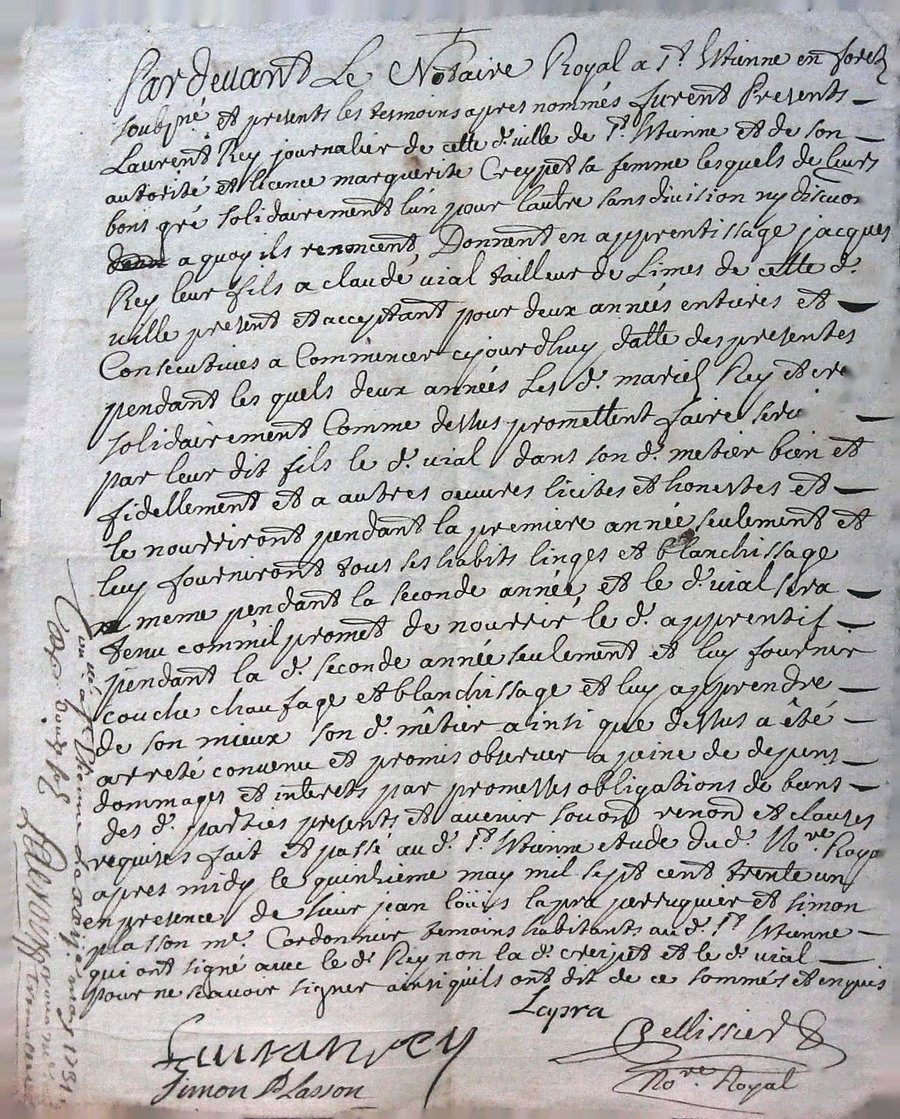 Par devant Le Notaire Royal a St. Etienne en forez
soubsné et presents les temoins apres nommés furent Presents
Laurent Rey journalier de cette d. ville de St. Etienne et de son
autorité et licence marguerite Creypet sa femme lesquels de leurs
bons gré solidairement l'un pour l'autre sans division ny discuon
a quoy ils renoncent, Donnent en apprentissage jacques
Rey leur fils a claude vial tailleur de Limes de cette d.
ville present et acceptant pour deux années entieres et
Consecutives a Commencer cejourdhuy datte des presentes
pendant les quels deux années Les d. mariés Rey et cre
solidairement Comme dessus promettent faire servi
par leur dit fils le d. vial dans son d. metier bien et
fidellement et a autres oeuvres licites et honestes et
le nourriront pendant la premiere année seulement et
luy fourniront tous ses habits linges et blanchissage
meme pendant la seconde année et le d. vial sera
tenu comm'il promet de nourrir le d. apprentif
pendant la d. seconde année seulement et luy fournir
couche chaufage et blanchissage et luy apprendre
de son mieux son d. mêtier ainsi que dessus a êté
arreté convenu et promis observer a peine de depens
dommages et interets par promesses obligations de biens
des d. parties presents et avenir soubon renond et clauses
requises fait et passé au d. St. Etienne etude du d. Nore. Roya
apres midy le quinzieme may mil sept cent trente un
en presence de sieur jean louis lapra perruquier et simon
plasson me. Cordonnier temoins habitants au d. St. Etienne
qui ont signé avec le d. Rey non la d. creipet et le d. vial
pour ne scavoir signer ainsi qu'ils ont dit de ce sommés et enquis
Lapra
Lauran rey
Pellissier
Simon Plasson
Nore. Royal
a St. Etienne le may 1731
douze